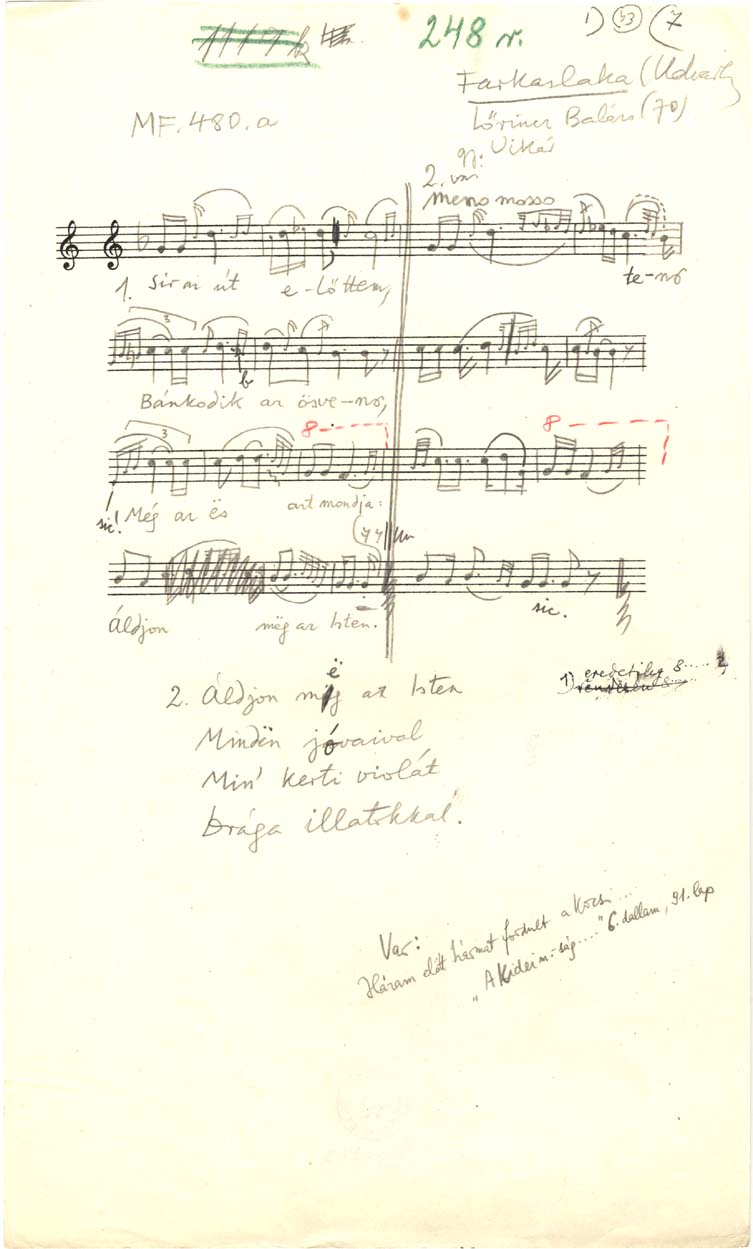 248 r. 1) 53 (7
Farkaslaka (Udvarh
MF.480.a
Lőrincz Balázs (70)
gy: Vikár
2. var
meno mosso
1. Sirai út e-lőttem,
te-nö
3
b
Bánkodik az ösve-nö,
3
8
8
sic! Még az ës azt mondja:
Áldjon még az Isten.
sic.
2. Áldjon még az Isten
ë
1) eredetileg 8.....
Mindën jóvaival
Min' kerti violát
Drága illatokkal.
Var:
Három előtt hármat fordult a kocsi...
" 6. dallam, 91. lap